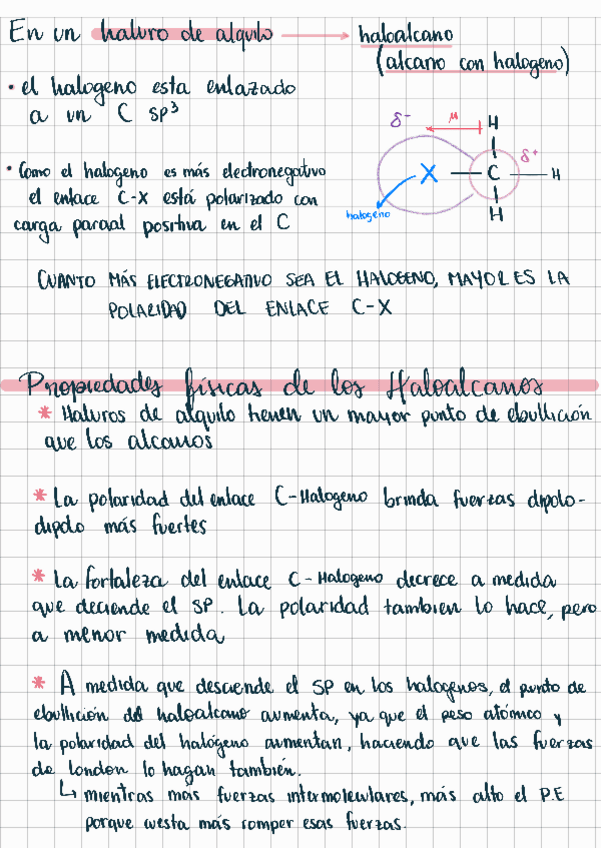 En un haluro de alquilo → haloalcano
(alcano con halogeno)
• el halogeno esta enlazado
a un C sp³
• Como el halogeno es más electronegativo
el enlace C-X está polarizado con
carga parcial positiva en el C
δ⁻ μ H
δ⁺
X — C — H
halogeno
H
CUANTO MÁS ELECTRONEGATIVO SEA EL HALOGENO, MAYOR ES LA
POLARIDAD DEL ENLACE C-X
Propiedades físicas de los Haloalcanos
* Haluros de alquilo tienen un mayor punto de ebullición
que los alcanos
* La polaridad del enlace C-Halogeno brinda fuerzas dipolo-
dipolo más fuertes
* La fortaleza del enlace C-Halogeno decrece a medida
que deciende el SP. La polaridad tambien lo hace, pero
a menor medida
* A medida que desciende el SP en los halogenos, el punto de
ebullición del haloalcano aumenta, ya que el peso atómico y
la polaridad del halógeno aumentan, haciendo que las fuerzas
de london lo hagan también.
↳ mientras más fuerzas intermoleculares, más alto el P.E
porque cuesta más romper esas fuerzas.